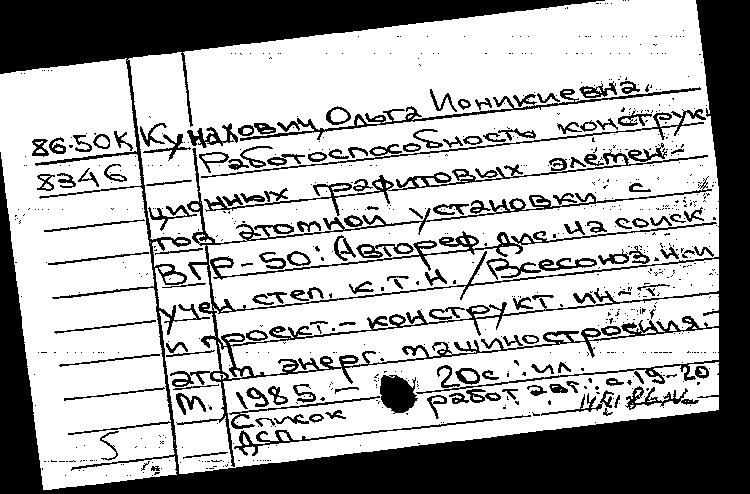 86.50К Кунахович, Ольга Ионикиевна.
8346 Работоспособность конструк-
ционных графитовых элемен-
тов атомной установки с
ВГР-50: Автореф. дис. на соиск.
учен. степ. к.т.н. / Всесоюз. н.-и
и проект.-конструкт. ин-т
атом. энерг. машиностроения. -
М., 1985. - 20с.: ил.
Список работ авт.: с. 19-20
ДСП.
5